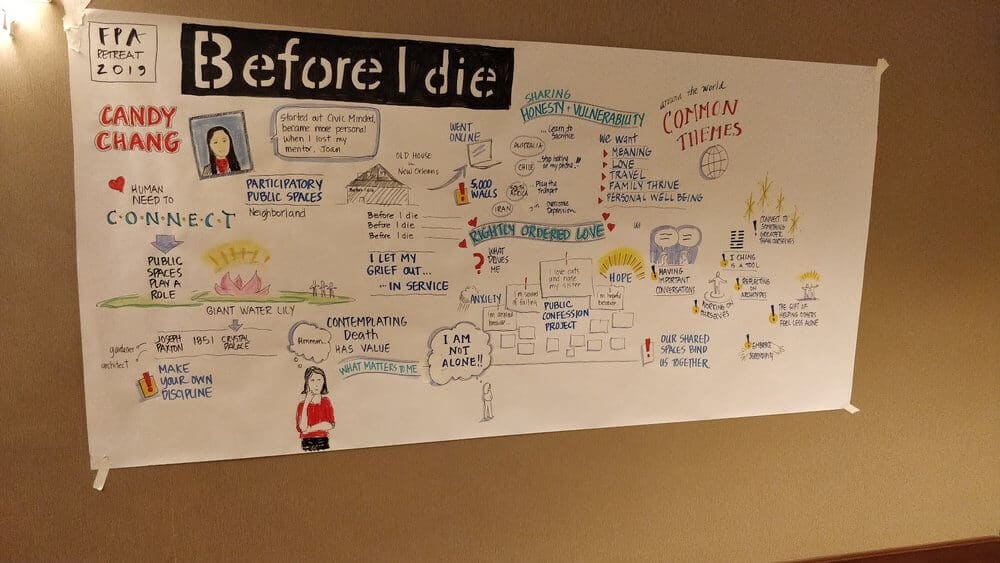 FPA
RETREAT
2019
Before I die
CANDY
CHANG
Started out Civic Minded,
became more personal
when I lost my
mentor, Joan
HUMAN
NEED TO
C·O·N·N·E·C·T
PARTICIPATORY
PUBLIC SPACES
Neighborland
PUBLIC
SPACES
PLAY A
ROLE
GIANT WATER LILY
gardener
architect
JOSEPH
PAXTON
1851
CRYSTAL
PALACE
MAKE
YOUR OWN
DISCIPLINE
OLD HOUSE
in
New Orleans
Before I die
Before I die
Before I die
Before I die
I LET MY
GRIEF OUT...
...IN SERVICE
Hmmm...
CONTEMPLATING
Death
HAS VALUE
WHAT MATTERS TO ME
WENT
ONLINE
5,000
WALLS
SHARING
HONESTY + VULNERABILITY
AUSTRALIA
...Learn to
Sacrifice
CHILE
...Stop looking
at my phone!
SOUTH
AFRICA
...Play the
Trumpet
IRAN
...overcome
Depression
RIGHTLY ORDERED LOVE
WHAT
DRIVES
ME
?
ANXIETY
I'm scared
of failing
I love cats
and hate
my sister
HOPE
I'm hopeful
because...
because...
PUBLIC
CONFESSION
PROJECT
I AM
NOT
ALONE!!
around the world
COMMON
THEMES
We want
MEANING
LOVE
TRAVEL
FAMILY THRIVE
PERSONAL WELL BEING
HAVING
IMPORTANT
CONVERSATIONS
OUR SHARED
SPACES BIND
US TOGETHER
I CHING
IS A TOOL
WORKING ON
OURSELVES
REFLECTING
ON
ARCHETYPES
CONNECT TO
SOMETHING
GREATER
THAN OURSELVES
THE GIFT OF
HELPING OTHERS
FEEL LESS ALONE
EMBRACE